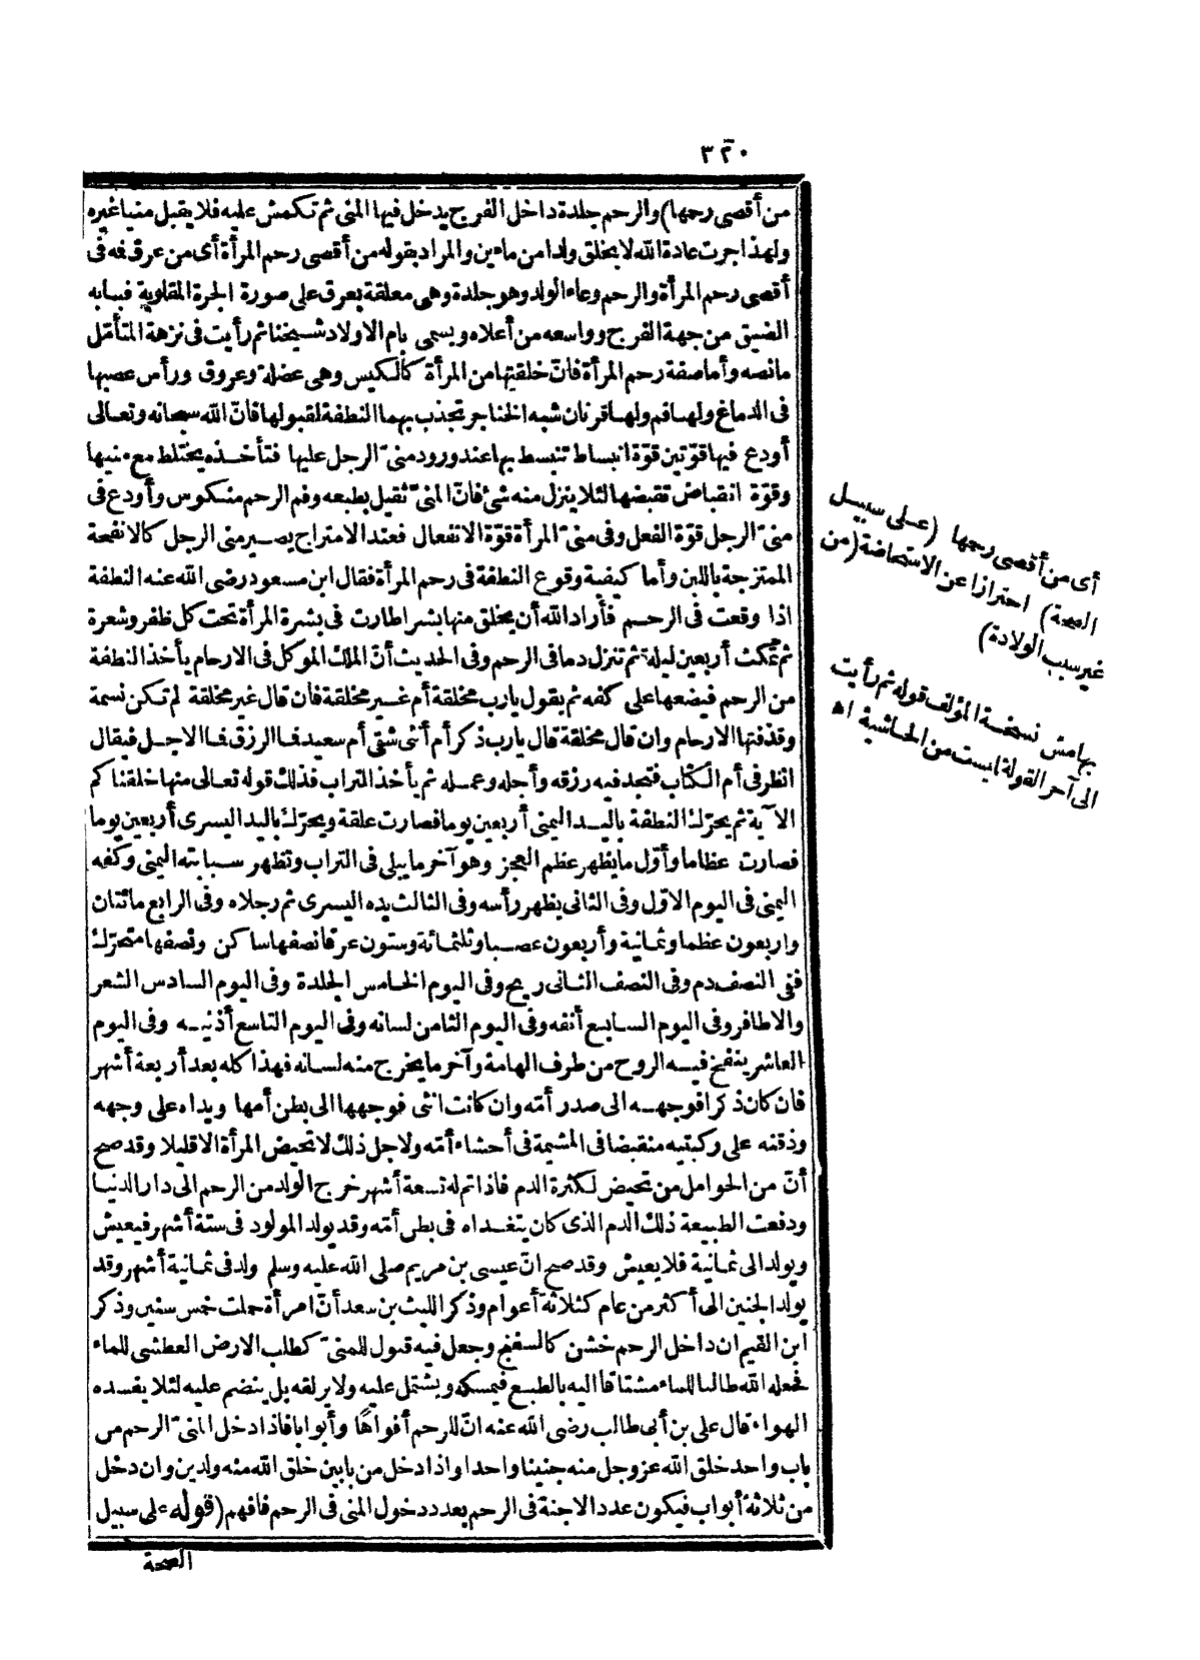 ٣٢٠
من أقصى رحمها) والرحم جلدة داخل الفرج يدخل فيها المنى ثم تكمش عليه فلا يقبل منيا غيره
ولهذا جرت عادة الله لا يخلق ولدا من ماءين والمراد بقوله من أقصى رحم المرأة أى من عرق فه فى
أقصى رحم المرأة والرحم وعاء الولد وهو جلدة وهى معلقة بعرق على صورة الجرة المقلوبة فبابه
الضيق من جهة الفرج وواسعه من أعلاه ويسمى بام الاولاد شيخنا ثم رأيت فى نزهة المتأمّل
مانصه وأما صفة رحم المرأة فانّ خلقتها من المرأة كالكيس وهى عضلة وعروق ورأس عصبها
فى الدماغ ولها فم ولها قرنان شبه الخناجر تجذب بهما النطفة لقبولها فانّ الله سبحانه وتعالى
أودع فيها قوّتين قوّة انبساط تنبسط بها عند ورود منىّ الرجل عليها فتأخذه يختلط مع منيها
وقوّة انقباض تقبضها لئلا ينزل منه شئ فانّ المنىّ ثقيل بطبعه وفم الرحم منكوس وأودع فى
منىّ الرجل قوّة الفعل وفى منىّ المرأة قوّة الانفعال فعند الامتزاج يصير منى الرجل كالانفحة
الممتزجة باللبن وأما كيفية وقوع النطفة فى رحم المرأة فقال ابن مسعود رضى الله عنه النطفة
اذا وقعت فى الرحم فأراد الله أن يخلق منها بشرا طارت فى بشرة المرأة تحت كل ظفر وشعرة
ثم تمكث أربعين ليلة ثم تنزل دما فى الرحم وفى الحديث أنّ الملك الموكل فى الارحام يأخذ النطفة
من الرحم فيضعها على كفه ثم يقول يارب مخلقة أم غير مخلقة فان قال غير مخلقة لم تكن نسمة
وقذفتها الارحام وان قال مخلقة قال يارب ذكر أم أنثى شقى أم سعيد فما الرزق فما الاجل فيقال
انظر فى أم الكتاب فتجد فيه رزقه وأجله وعمله ثم يأخذ التراب فذلك قوله تعالى منها خلقنا كم
الآية ثم يحرّك النطفة باليد اليمنى أربعين يوما فصارت علقة ويحرّك باليد اليسرى أربعين يوما
فصارت عظاما وأوّل ما يظهر عظم العجز وهو آخر ما يبلى فى التراب وتظهر سبابته اليمنى وكفه
اليمنى فى اليوم الاوّل وفى الثانى يظهر رأسه وفى الثالث يده اليسرى ثم رجلاه وفى الرابع مائتان
واربعون عظما وثمانية وأربعون عصبا وثلثمائة وستون عرقا نصفها ساكن ونصفها متحرّك
ففى النصف دم وفى النصف الثانى ريح وفى اليوم الخامس الجلدة وفى اليوم السادس الشعر
والاظافر وفى اليوم السابع أنفه وفى اليوم الثامن لسانه وفى اليوم التاسع أذنيه وفى اليوم
العاشر ينفخ فيه الروح من طرف الهامة وآخر ما يخرج منه لسانه فهذا كله بعد أربعة أشهر
فان كان ذكرا فوجهه الى صدر أمّه وان كانت انثى فوجهها الى بطن أمها ويداه على وجهه
وذقنه على ركبتيه منقبضا فى المشيمة فى أحشاء أمّه ولاجل ذلك لا تحيض المرأة الا قليلا وقد صح
أنّ من الحوامل من تحيض لكثرة الدم فاذا تم له تسعة أشهر خرج الولد من الرحم الى دار الدنيا
ودفعت الطبيعة ذلك الدم الذى كان يتغداه فى بطن أمّه وقد يولد المولود فى ستة أشهر فيعيش
ويولد الى ثمانية فلا يعيش وقد صح انّ عيسى بن مريم صلى الله عليه وسلم ولد فى ثمانية أشهر وقد
يولد الجنين الى أكثر من عام كثلاثة أعوام وذكر الليث بن سعد أنّ امرأة حملت خمس سنين وذكر
ابن القيم ان داخل الرحم خشن كالسفنج وجعل فيه قبول للمنىّ كطلب الارض العطشى للماء
فجعله الله طالبا للماء مشتاقا اليه بالطبع فيمسكه ويشتمل عليه ولا يزلقه بل ينضم عليه لئلا يفسده
الهواء قال على بن أبى طالب رضى الله عنه انّ للرحم أفواها وأبوابا فاذا دخل المنىّ الرحم من
باب واحد خلق الله عز وجل منه جنينا واحدا واذا دخل من بابين خلق الله منه ولدين وان دخل
من ثلاثة أبواب فيكون عدد الاجنة فى الرحم بعدد دخول المنى فى الرحم فافهم (قوله على سبيل
الصحة
أى من أقصى رحمها (على سبيل
الصحة) احترازا عن الاستحاضة (من
غير سبب الولادة)
بهامش نسخة المؤلف قوله ثم رأيت
الى آخر القولة ليست من الحاشية اه